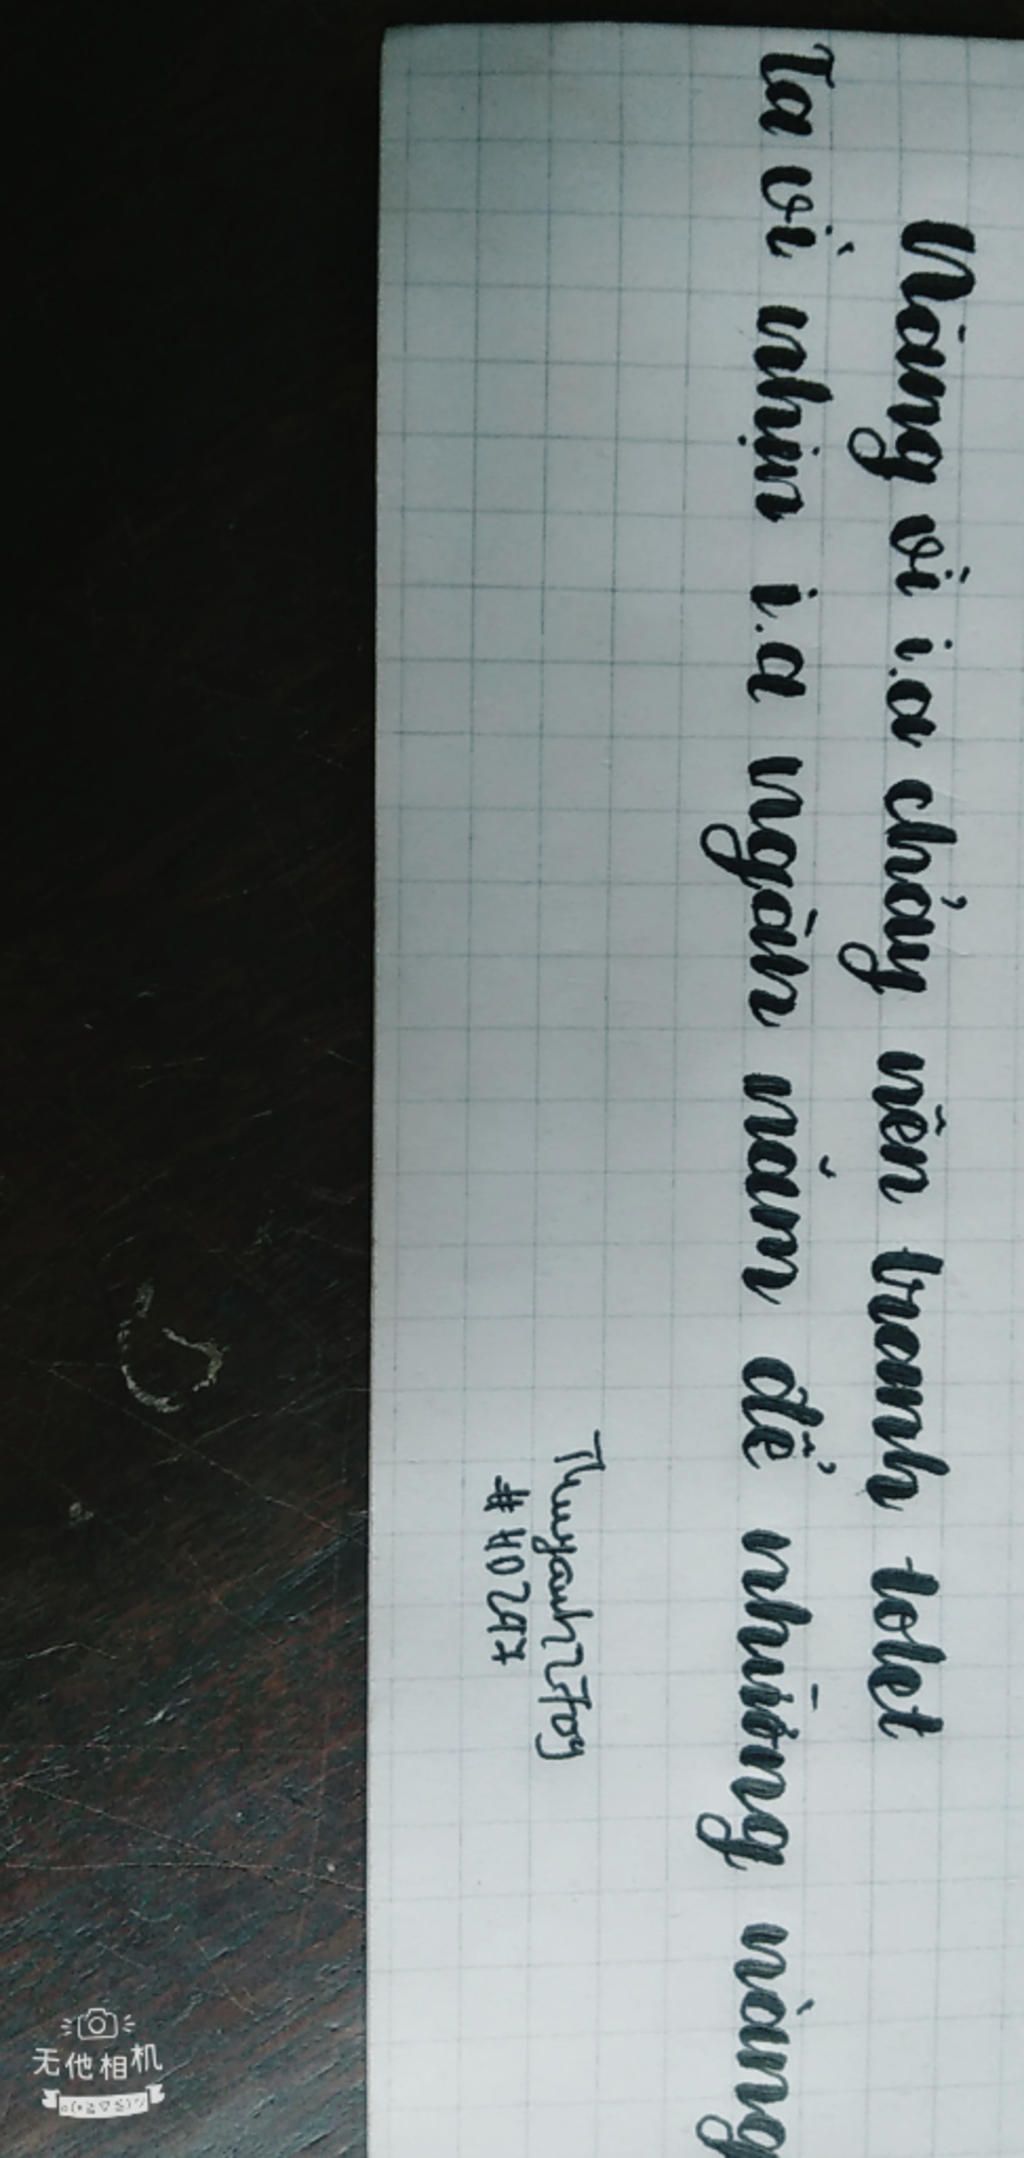 Nàng vì i.a chảy nên tranh tolet
Ta vì nhịn i.a ngàn năm để nhường nàng
Thuyanh2709
#40297
无他相机